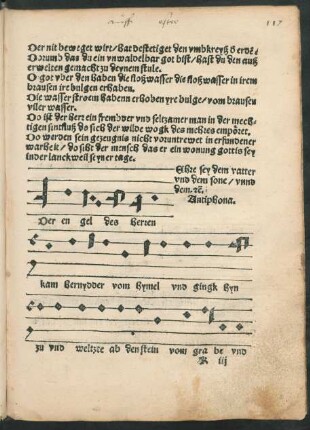 Der nit beweget wirt / hat bestetiget den vmbkreyß d erdẽ
Dorumb das du ein vnwandelbar got bist / hast du den auß
erwelten gemacht zu deynem stule.
O got vber den haben die floßwasser die floßwasser in irem
brausen ire bulgen erhaben.
Die wasser stroem habenn erhoben yre bulge / vom brausen
viler wasser.
Do ist der herr ein fremder vnd seltzamer man in der mech-
tigen sintfluß do sich der wilde wogk des mehres empöret.
Do werden sein gezeugnis nicht voruntrewet in erfundener
warheit / do siht der mensch das er ein wonung gottis sey
inder lanckweil seyner tage.
Ehre sey dem vatter
vnd dem sone / vnnd
dem. ꝛc.
Antiphona.
Der en gel des herren
kam hernydder vom hymel vnd gingk hyn
zu vnd weltzte ab den stein vom gra be vnd
R iij